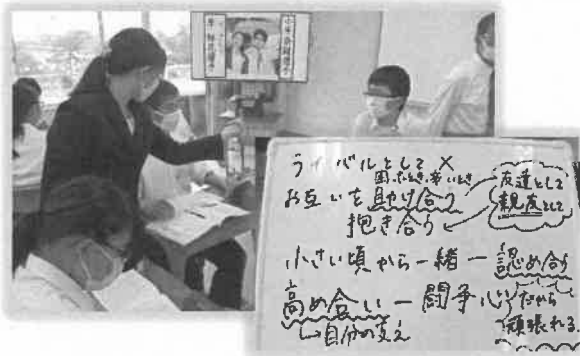 ライバルとして ×
困ったとき、辛いとき
お互いを助け合う
抱き合う
友達として
親友として
小さい頃から一緒 ー 認め合う
高め合い ー 闘争心
だから
頑張れる
↳自分の支え